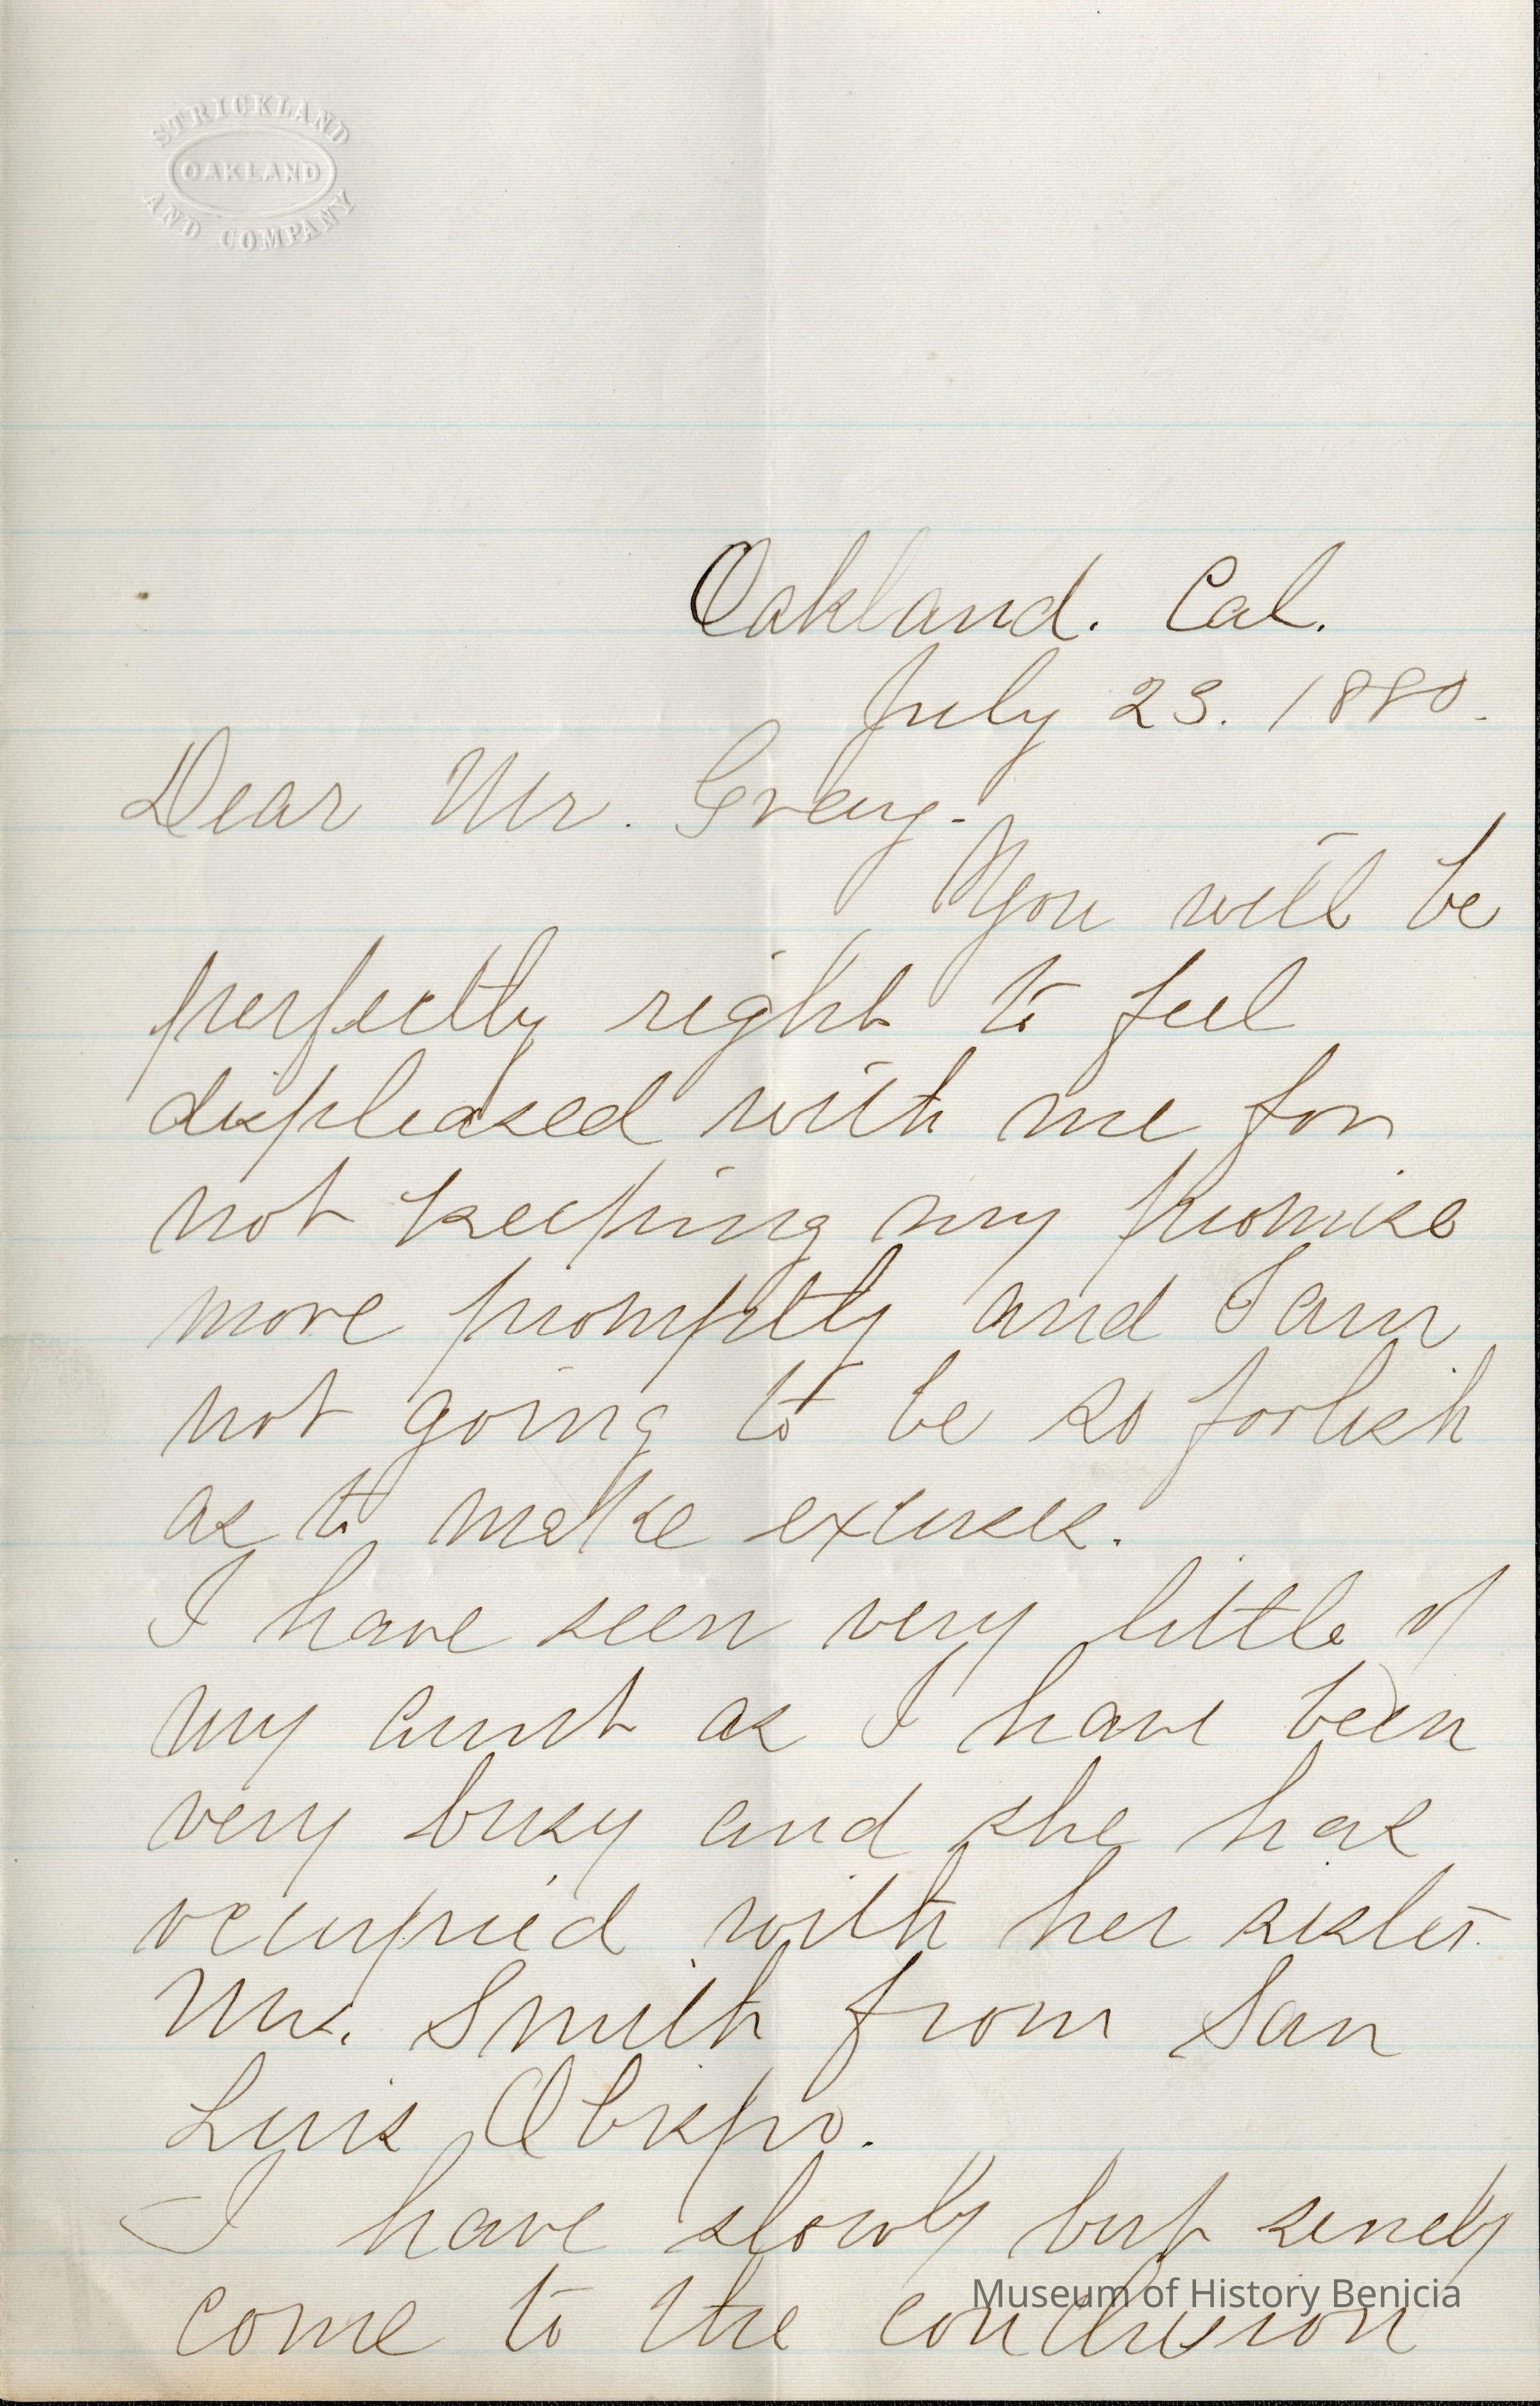 STRICKLAND
OAKLAND
AND COMPANY
Oakland. Cal.
July 23. 1880.
Dear Mr. Gray.
You will be
perfectly right to feel
displeased with me for
not keeping my promise
more promptly and I am
not going to be so foolish
as to make excuses.
I have seen very little of
my aunt as I have been
very busy and she has
occupied with her sister
Mrs. Smith from San
Luis Obispo.
I have slowly but surely
come to the conclusion
Museum of History Benicia